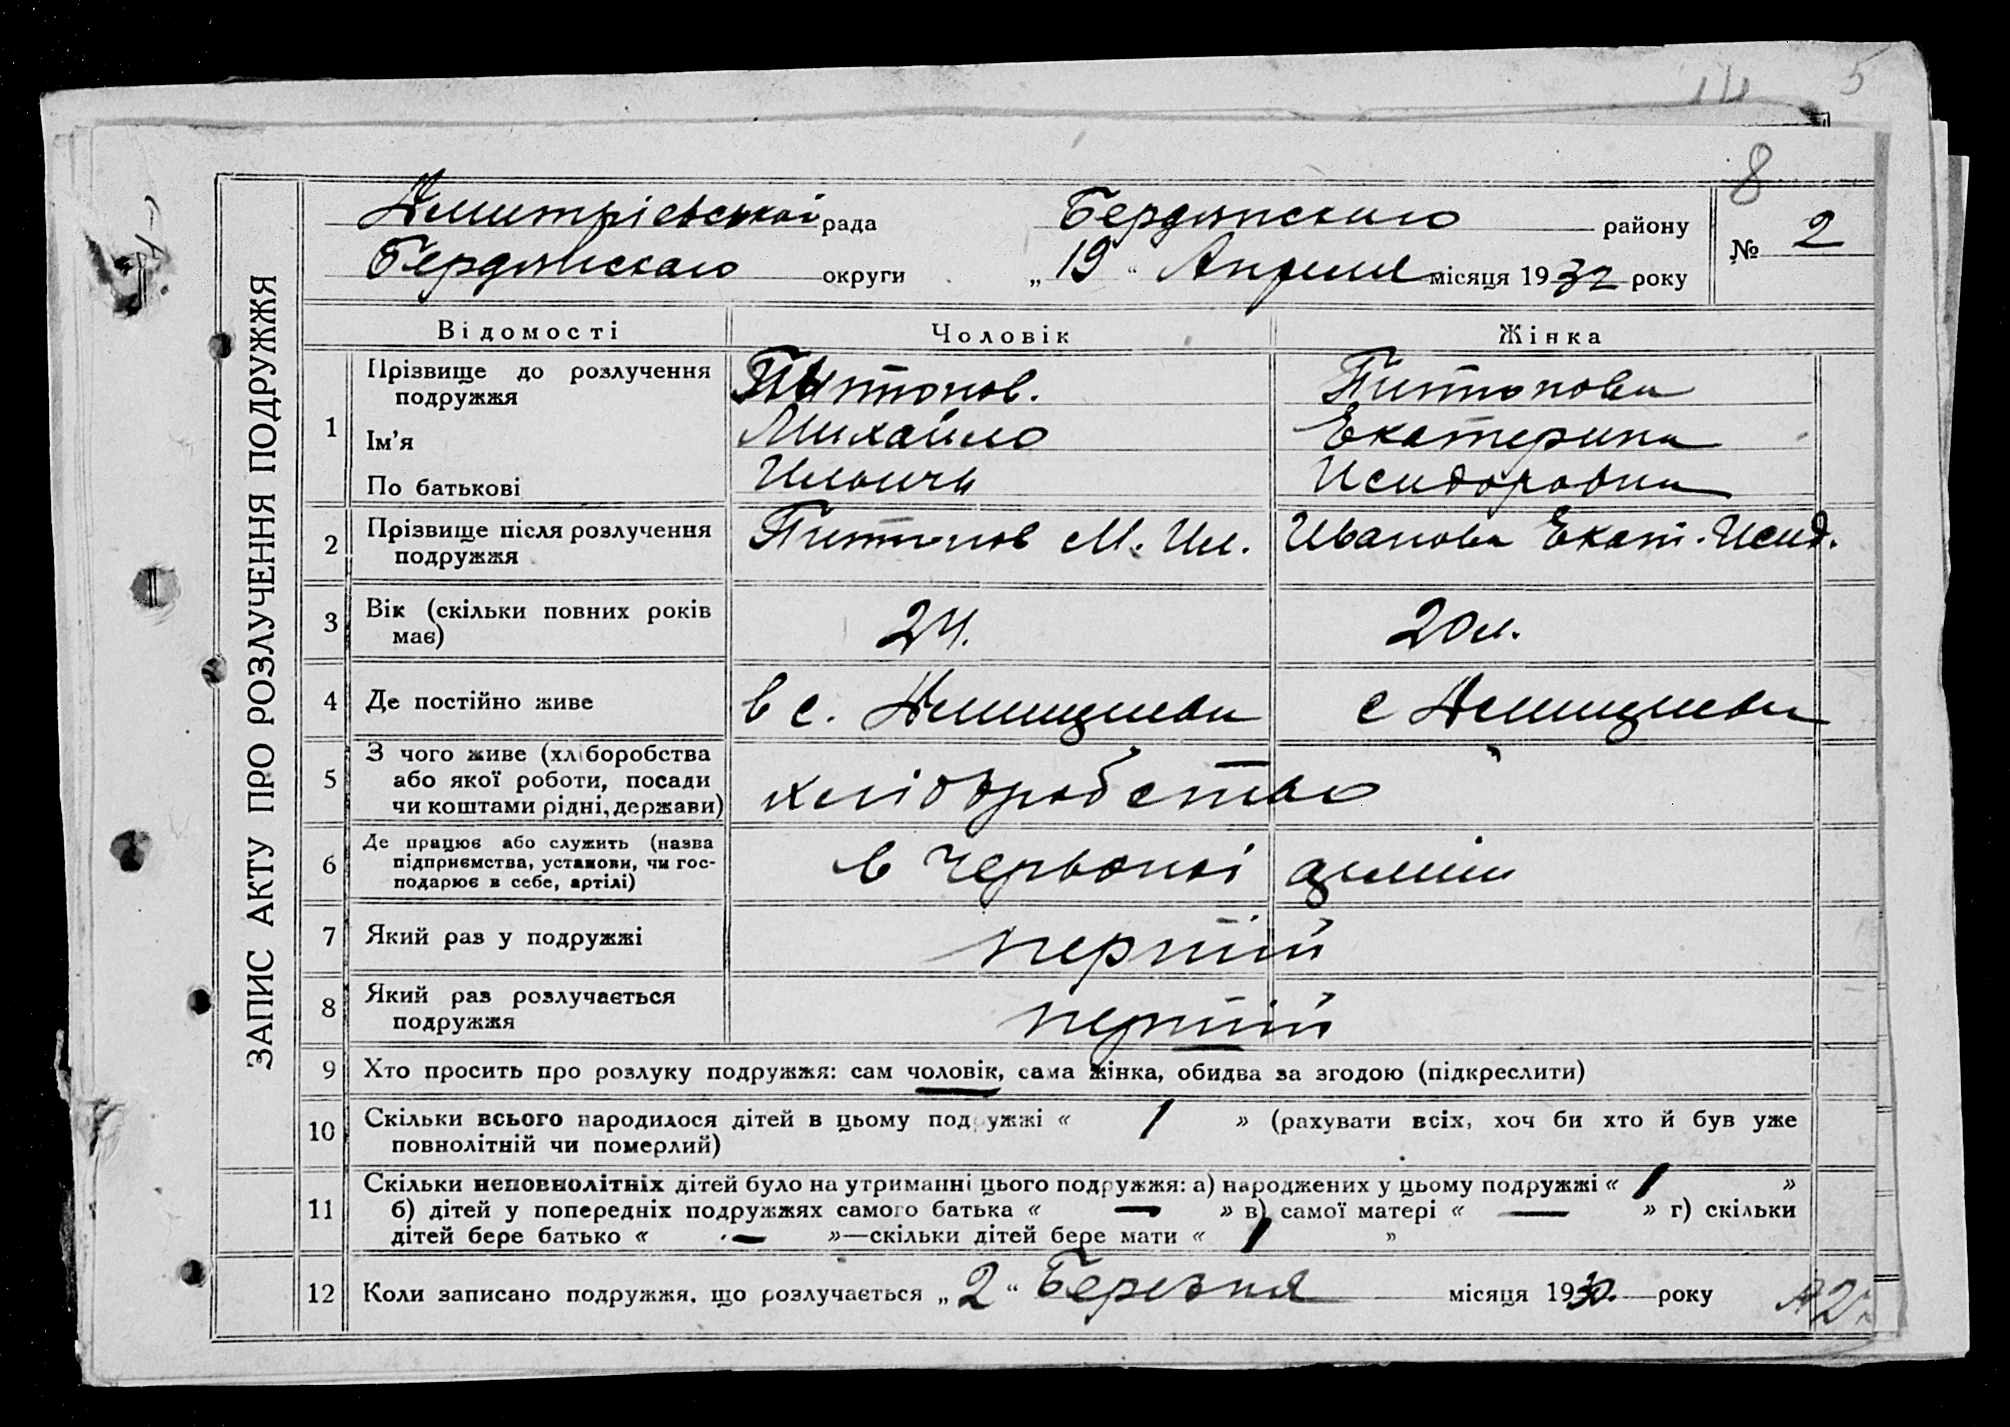 14 5
8
Дмитрієвської рада Бердянского району
№ 2
Бердянскаго округи „ 19 “ Апреля місяця 1932 року
ЗАПИС АКТУ ПРО РОЗЛУЧЕННЯ ПОДРУЖЖЯ
Відомості Чоловік Жінка
1 Прізвище до розлучення
подружжя
Ім’я Михайло Екатерина
По батькові Ильичь Исидоровна
2 Прізвище після розлучення М. Ил. Иванова Екат. Исид.
подружжя
3 Вік (скільки повних років 24. 20 л.
має)
4 Де постійно живе в с. с
5 З чого живе (хліборобства
або якої роботи, посади хліборобство
чи коштами рідні, держави)
6 Де працює або служить (назва
підприємства, установи, чи гос-
подарює в себе, артілі) в Червоной
7 Який раз у подружжі перший
8 Який раз розлучається перший
подружжя
9 Хто просить про розлуку подружжя: сам чоловік, сама жінка, обидва за згодою (підкреслити)
10 Скільки всього народилося дітей в цьому подружжі « 1 » (рахувати всіх, хоч би хто й був уже
повнолітній чи померлий)
11 Скільки неповнолітніх дітей було на утриманні цього подружжя: а) народжених у цьому подружжі « 1 »
б) дітей у попередніх подружжях самого батька « — » в) самої матері « — » г) скільки
дітей бере батько « — »—скільки дітей бере мати « 1 »
12 Коли записано подружжя, що розлучається „ 2 “ Березня місяця 1930. року